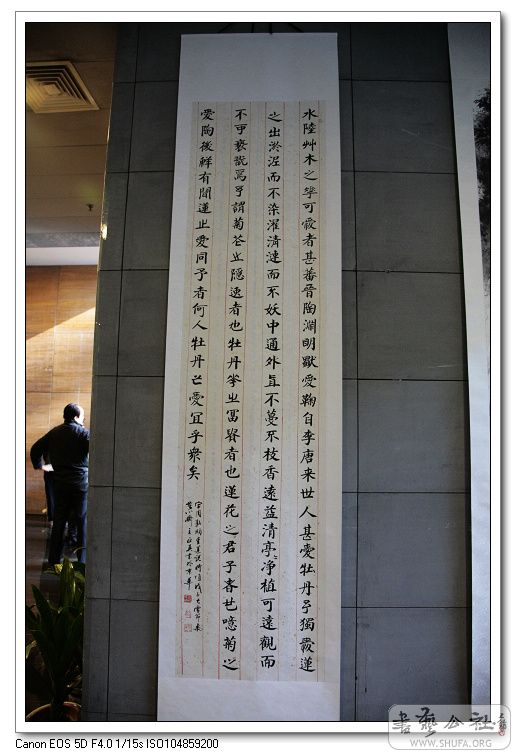 水陸艸木之華可愛者甚蕃晉陶淵明獨愛鞠自李唐来世人甚愛牡丹予獨愛蓮
之出淤泥而不染濯清漣而不妖中通外直不蔓不枝香遠益清亭〻淨植可遠觀而
不可褻翫焉予謂菊花之隱逸者也牡丹華之富貴者也蓮花之君子者也噫菊之
愛陶後鮮有聞蓮之愛同予者何人牡丹之愛宜乎衆矣
書藝公社
WWW.SHUFA.ORG
Canon EOS 5D F4.0 1/15s ISO104859200